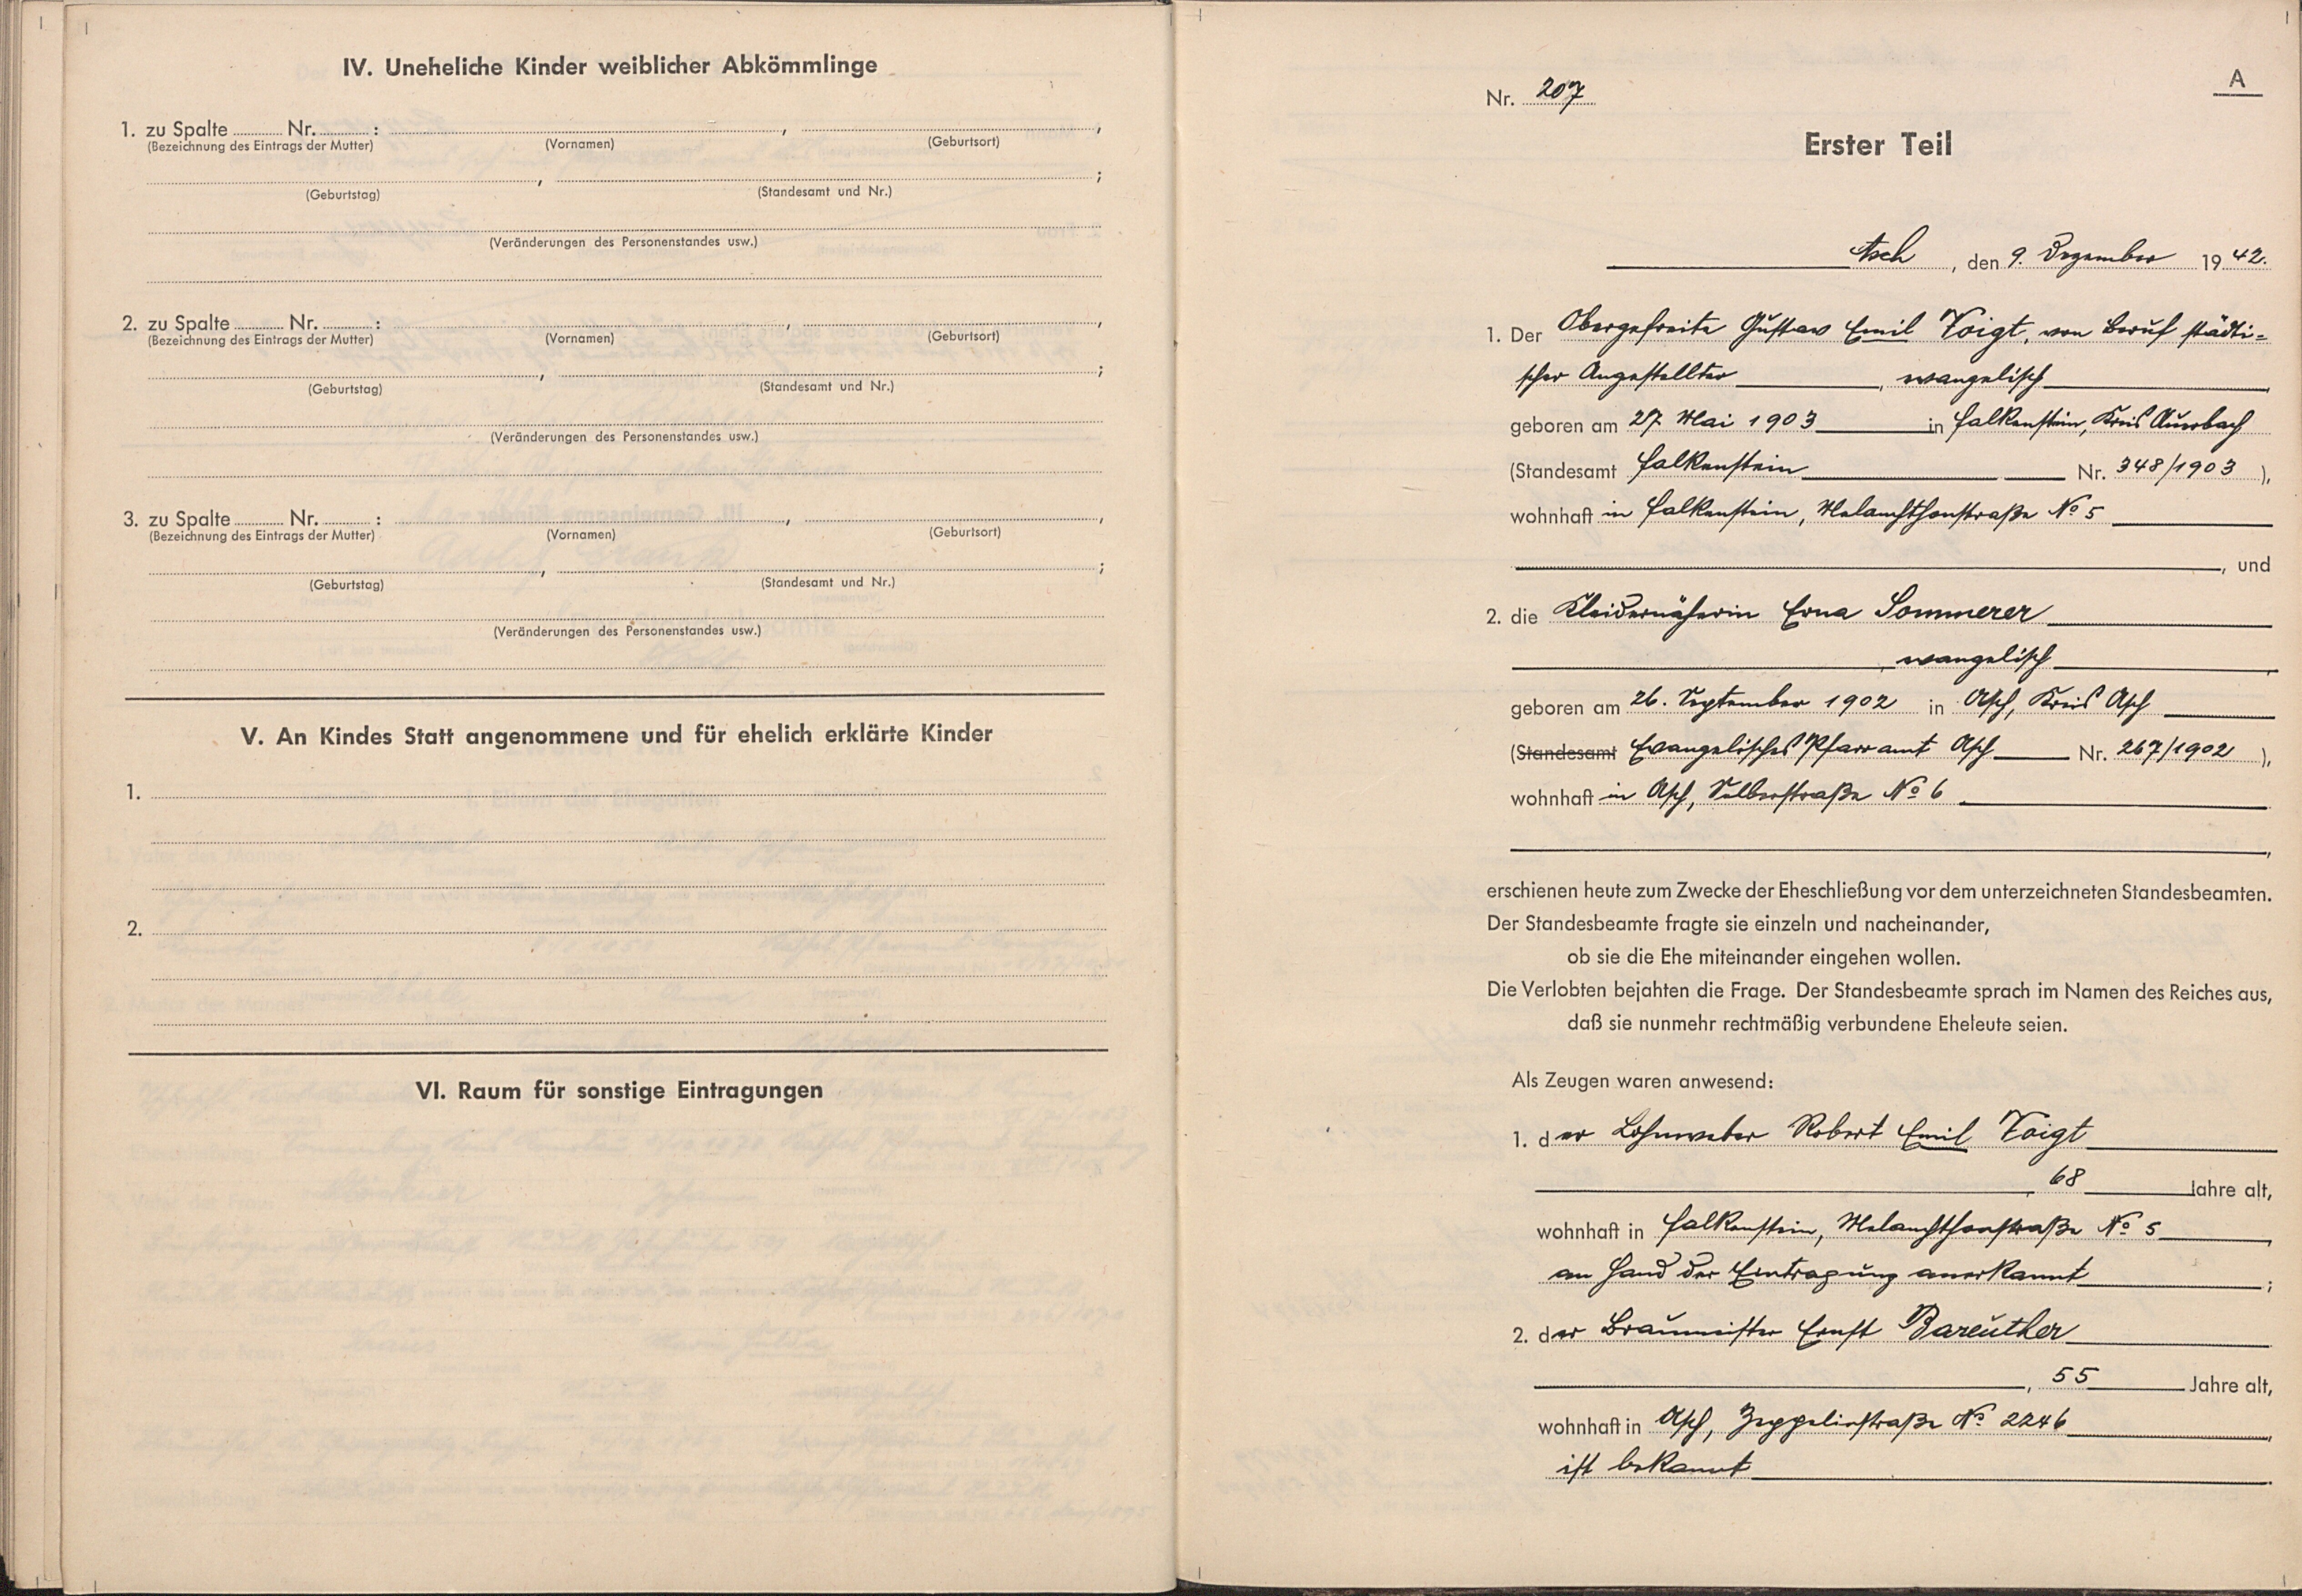 IV. Uneheliche Kinder weiblicher Abkömmlinge
1. zu Spalte ............ Nr. ............ : , ,
(Bezeichnung des Eintrags der Mutter) (Vornamen) (Geburtsort)
, ;
(Geburtstag) (Standesamt und Nr.)
(Veränderungen des Personenstandes usw.)
2. zu Spalte ............ Nr. ............ : , ,
(Bezeichnung des Eintrags der Mutter) (Vornamen) (Geburtsort)
, ;
(Geburtstag) (Standesamt und Nr.)
(Veränderungen des Personenstandes usw.)
3. zu Spalte ............ Nr. ............ : , ,
(Bezeichnung des Eintrags der Mutter) (Vornamen) (Geburtsort)
, ;
(Geburtstag) (Standesamt und Nr.)
(Veränderungen des Personenstandes usw.)
V. An Kindes Statt angenommene und für ehelich erklärte Kinder
1.
2.
VI. Raum für sonstige Eintragungen
A
Nr. 207
Erster Teil
Asch, den 9. Dezember 1942.
1. Der Obergefreite Gustav Emil Voigt, von Beruf städti=
scher Angestellter, evangelisch,
geboren am 27. Mai 1903 in Falkenstein, Kreis Auerbach
(Standesamt Falkenstein Nr. 348/1903),
wohnhaft in Falkenstein, Melanchthonstraße No 5
, und
2. die Kleidernäherin Erna Sommerer
, evangelisch,
geboren am 26. September 1902 in Asch, Kreis Asch
(Standesamt Evangelisches Pfarramt Asch Nr. 267/1902),
wohnhaft in Asch, Selberstraße No 6
,
erschienen heute zum Zwecke der Eheschließung vor dem unterzeichneten Standesbeamten.
Der Standesbeamte fragte sie einzeln und nacheinander,
ob sie die Ehe miteinander eingehen wollen.
Die Verlobten bejahten die Frage. Der Standesbeamte sprach im Namen des Reiches aus,
daß sie nunmehr rechtmäßig verbundene Eheleute seien.
Als Zeugen waren anwesend:
1. der Lohnweber Robert Emil Voigt
, 68 Jahre alt,
wohnhaft in Falkenstein, Melanchthonstraße No 5,
an Hand der Eintragung anerkannt;
2. der Braumeister Ernst Bareuther
, 55 Jahre alt,
wohnhaft in Asch, Zeppelinstraße No 2246,
ist bekannt.